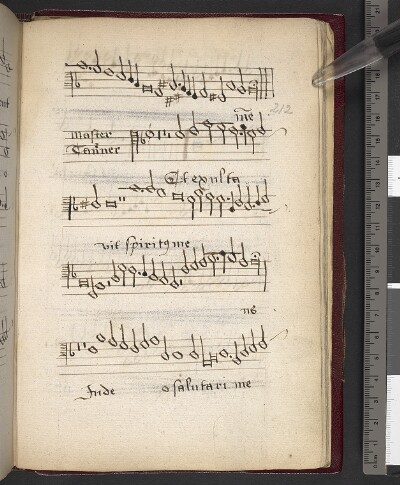 212
me
master
Tavner
Et exulta
vit spiritus me
us
In de o salutari me